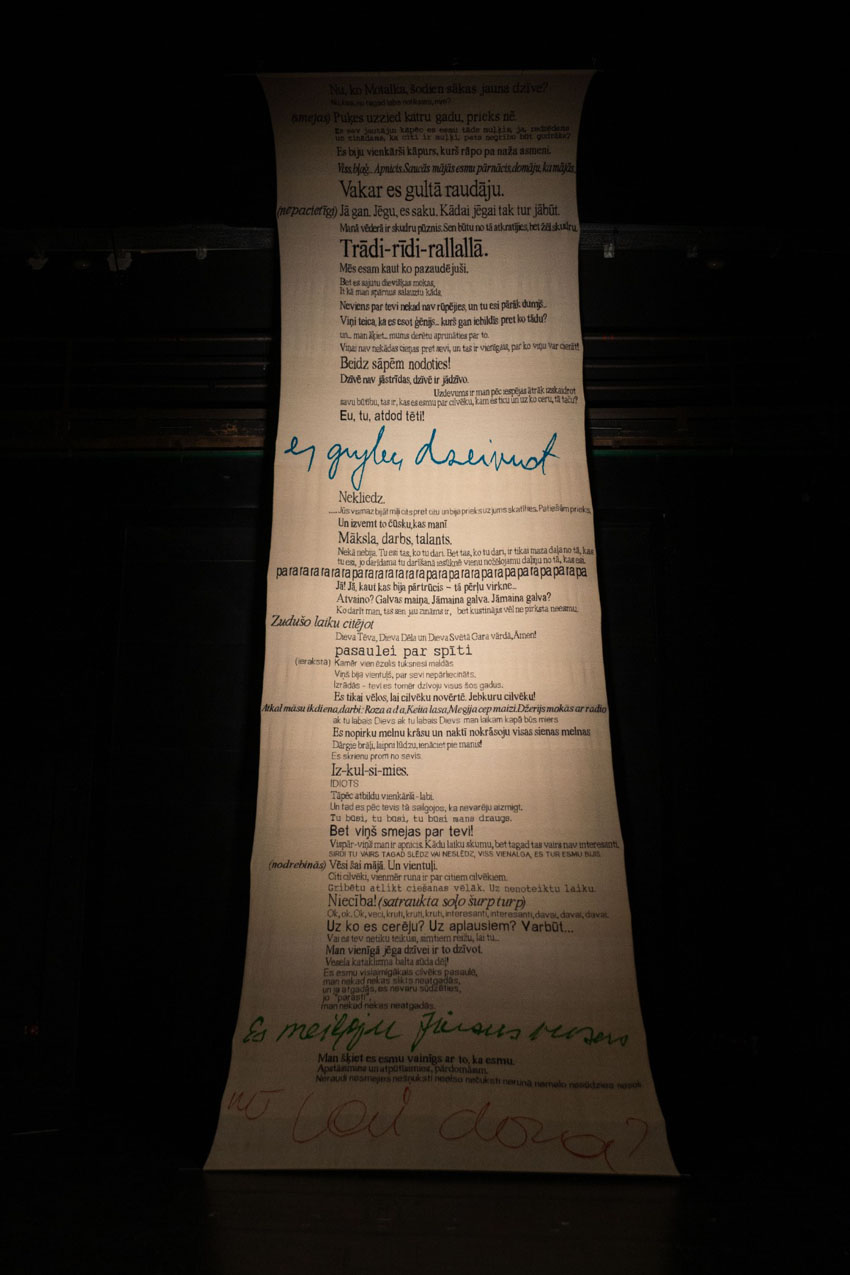 Nu, ko Motalka, šodien sākas jauna dzīve?
(smejas) Puķes uzzied katru gadu, prieks nē.
Es sev jautāju kāpēc es esmu tāds muļķis, ja, redzēdams
un zinādams, ka citi ir muļķi, pats negribu būt gudrāks?
Es biju vienkārši kāpurs, kurš rāpo pa naža asmeni.
Viss, bļaģ... Apnicis. Saucās mājās esmu pārnācis, domāju, ka mājās,
Vakar es gultā raudāju.
(nepacietīgi) Jā gan. Jēgu, es saku. Kādai jēgai tak tur jābūt.
Manā vēderā ir skudru pūznis. Sen būtu no tā atkratījies, bet žēl skudru.
Trādi-rīdi-rallallā.
Mēs esam kaut ko pazaudējuši.
Bet es sajutu dievišķas mokas,
It kā man spārnus salauztu kāds.
Neviens par tevi nekad nav rūpējies, un tu esi pārāk dumjš..
Viņi teica, ka es esot ģēnijs... kurš gan iebildīs pret ko tādu?
un... man šķiet... mums derētu aprunāties par to.
Viņai nav nekādas cieņas pret sevi, un tas ir vienīgais, par ko viņu var cienīt!
Beidz sāpēm nodoties!
Dzīvē nav jāstrīdas, dzīvē ir jādzīvo.
Uzdevums ir man pēc iespējas ātrāk izskaidrot
savu būtību, tas ir, kas es esmu par cilvēku, kam es ticu un uz ko ceru, tā taču?
Eu, tu, atdod tēti!
es grybu dzeivuot
Nekliedz.
Jūs vismaz bijāt mīļi cits pret citu un bija prieks uz jums skatīties. Patiešām prieks.
Un izvemt to čūsku, kas manī
Māksla, darbs, talants.
Nekā nebija. Tu esi tas, ko tu dari. Bet tas, ko tu dari, ir tikai maza daļa no tā, kas
tu esi, jo darīdama tu darīšanā iesūknē vienu nožēlojamu daļiņu no tā, kas esi.
pa ra ra ra ra ra pa ra ra ra ra ra ra pa ra pa ra ra pa ra pa pa ra pa pa ra pa
Jā! Jā, kaut kas bija pārtrūcis – tā pērļu virkne...
Atvaino? Galvas maiņa. Jāmaina galva. Jāmaina galva?
Ko darīt man, tas sen jau zināms ir, bet kustinājus vēl ne pirksta neesmu.
Zudušo laiku citējot
Dieva Tēva, Dieva Dēla un Dieva Svētā Gara vārdā, Āmen!
pasaulei par spīti
(ieraksta) Kamēr vien ēzelis tuksnesī meldās
Viņš bija vientuļš, par sevi nepārliecināts.
Izrādās - tevī es tomēr dzīvoju visus šos gadus.
Es tikai vēlos, lai cilvēku novērtē. Jebkuru cilvēku!
Atkal māsu ikdiena, darbi: Roza ada, Keita lasa, Megija cep maizi. Džerijs mokās ar radio
ak tu labais Dievs ak tu labais Dievs man laikam kapā būs miers
Es nopirku melnu krāsu un naktī nokrāsoju visas sienas melnas
Dārgie brāļi, laipni lūdzu, ienāciet pie manis!
Es skrienu prom no sevis.
Iz-kul-si-mies.
IDIOTS
Tāpēc atbildu vienkārši - labi.
Un tad es pēc tevis tā sailgojos, ka nevarēju aizmigt.
Tu būsi, tu būsi, tu būsi mans draugs.
Bet viņš smejas par tevi!
Vispār - viņš man ir apnicis. Kādu laiku skumu, bet tagad tas vairs nav interesanti.
SIRDI TU VAIRS TAGAD SLĒDZ VAI NESLĒDZ, VISS VIENALGA, ES TUR ESMU BIJIS.
(nodrebinās) Vēsi šai mājā. Un vientuļi.
Citi cilvēki, vienmēr runa ir par citiem cilvēkiem.
Gribētu atlikt ciešanas vēlāk. Uz nenoteiktu laiku.
Niecība! (satraukta soļo šurp turp)
Ok, ok. Ok, veci, kruti, kruti, kruti, interesanti, interesanti, davai, davai, davai.
Uz ko es cerēju? Uz aplausiem? Varbūt...
Vai es tev netiku teikusi, simtiem reižu, lai tu...
Man vienīgā jēga dzīvei ir to dzīvot.
Vesela kataklizma balta sūda dēļ!
Es esmu vislaimīgākais cilvēks pasaulē,
man nekad nekas slikts neatgadās,
un ja atgadās, es nevaru sūdzēties,
jo "parasti",
man nekad nekas neatgadās.
Es meiloju
Man šķiet es esmu vainīgs ar to, ka esmu.
Apstāsimies un atpūtīsimies, pārdomāsim.
Neraudi nesmejies nešņuksti